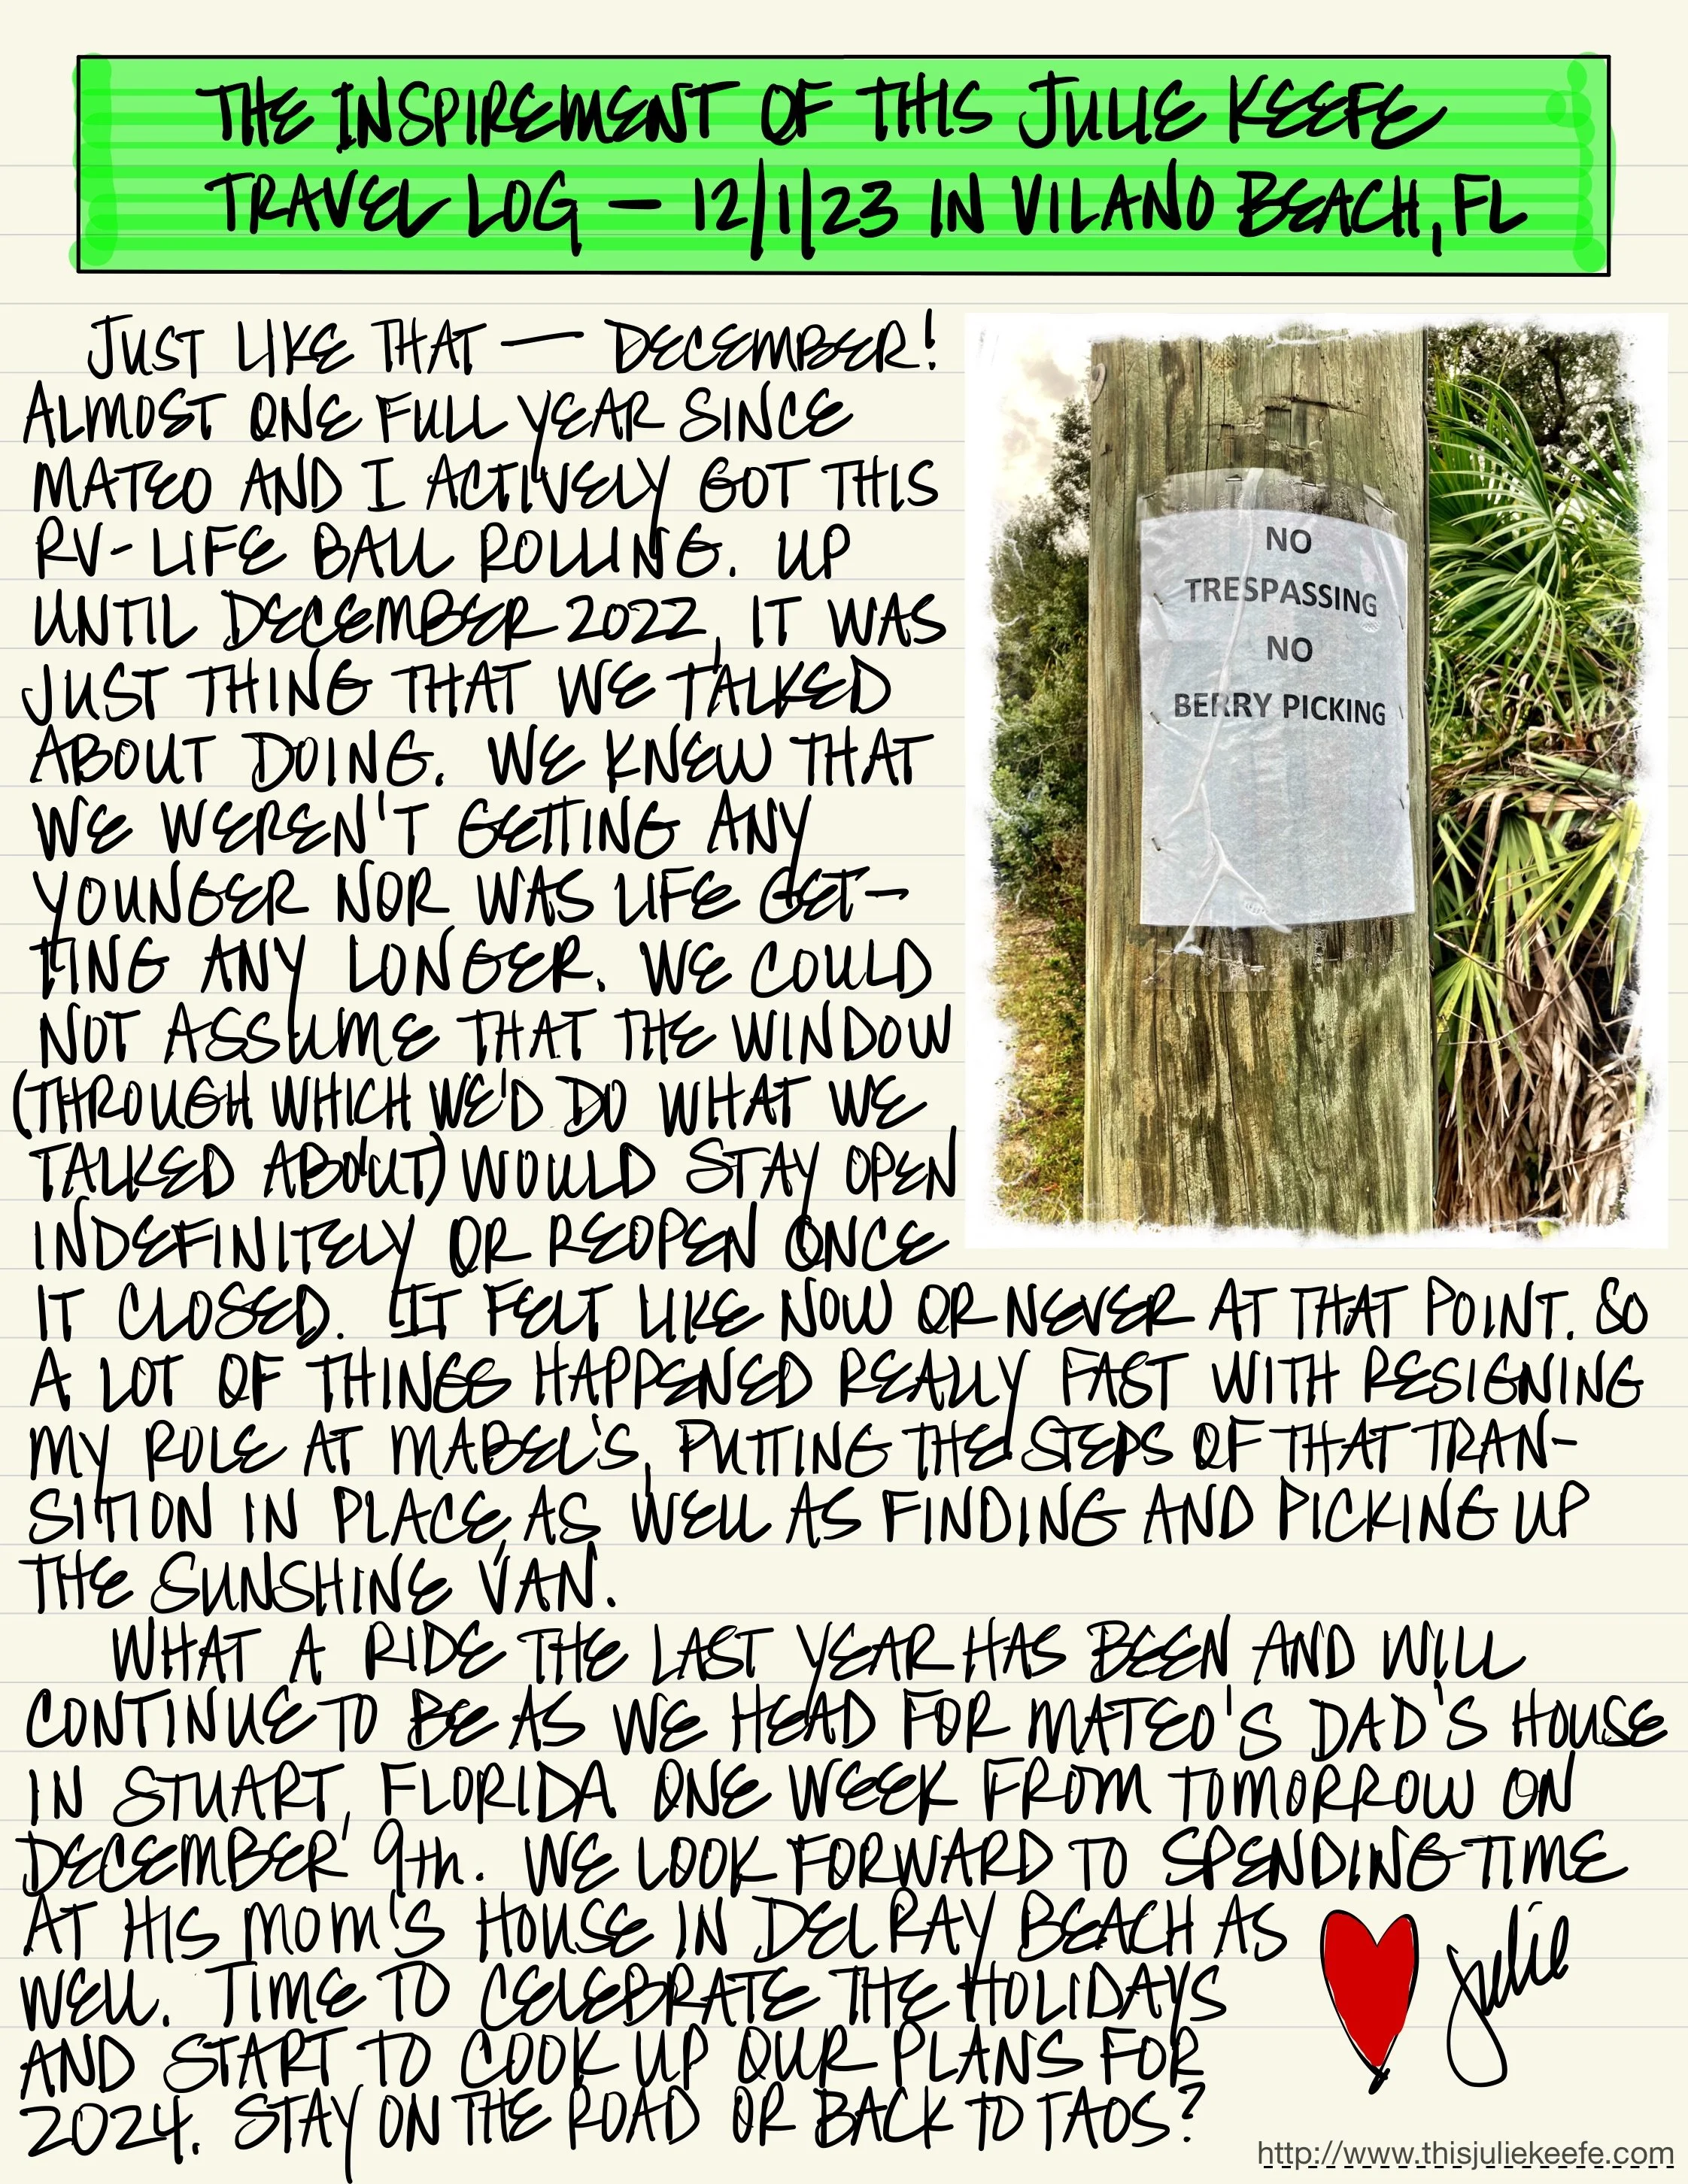 THE INSPIREMENT OF THIS JULIE KEEFE
TRAVEL LOG — 12/1/23 IN VILANO BEACH, FL
JUST LIKE THAT — DECEMBER!
ALMOST ONE FULL YEAR SINCE
MATEO AND I ACTIVELY GOT THIS
RV-LIFE BALL ROLLING. UP
UNTIL DECEMBER 2022, IT WAS
JUST THING THAT WE TALKED
ABOUT DOING. WE KNEW THAT
WE WEREN'T GETTING ANY
YOUNGER NOR WAS LIFE GET-
TING ANY LONGER. WE COULD
NOT ASSUME THAT THE WINDOW
(THROUGH WHICH WE'D DO WHAT WE
TALKED ABOUT) WOULD STAY OPEN
INDEFINITELY OR REOPEN ONCE
IT CLOSED. IT FELT LIKE NOW OR NEVER AT THAT POINT. SO
A LOT OF THINGS HAPPENED REALLY FAST WITH RESIGNING
MY ROLE AT MABEL'S, PUTTING THE STEPS OF THAT TRAN-
SITION IN PLACE, AS WELL AS FINDING AND PICKING UP
THE SUNSHINE VAN.
WHAT A RIDE THE LAST YEAR HAS BEEN AND WILL
CONTINUE TO BE AS WE HEAD FOR MATEO'S DAD'S HOUSE
IN STUART, FLORIDA ONE WEEK FROM TOMORROW ON
DECEMBER 9th. WE LOOK FORWARD TO SPENDING TIME
AT HIS MOM'S HOUSE IN DELRAY BEACH AS
WELL. TIME TO CELEBRATE THE HOLIDAYS
AND START TO COOK UP OUR PLANS FOR
2024. STAY ON THE ROAD OR BACK TO TAOS?
Julie
NO
TRESPASSING
NO
BERRY PICKING
http://www.thisjuliekeefe.com